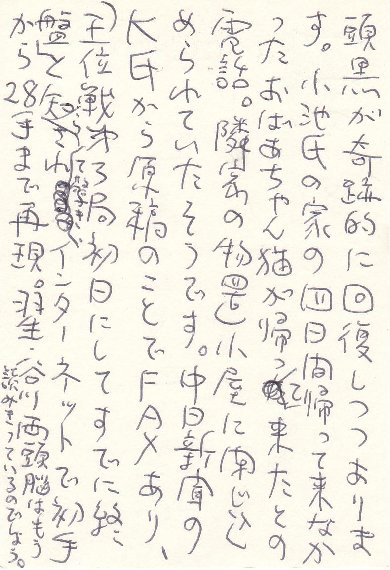 頭黒が奇跡的に回復しつつありま
す。小池氏の家の四日間帰って来なか
ったおばあちゃん猫が帰って来たとの
電話。隣家の物置小屋に閉じこ
められていたそうです。中日新聞の
K氏から原稿のことでFAXあり、
王位戦第3局初日にしてすでに終
盤と知らされ インターネットで初手
から28手まで再現。羽生・谷川両頭脳はもう
読みきっているのでしょう。